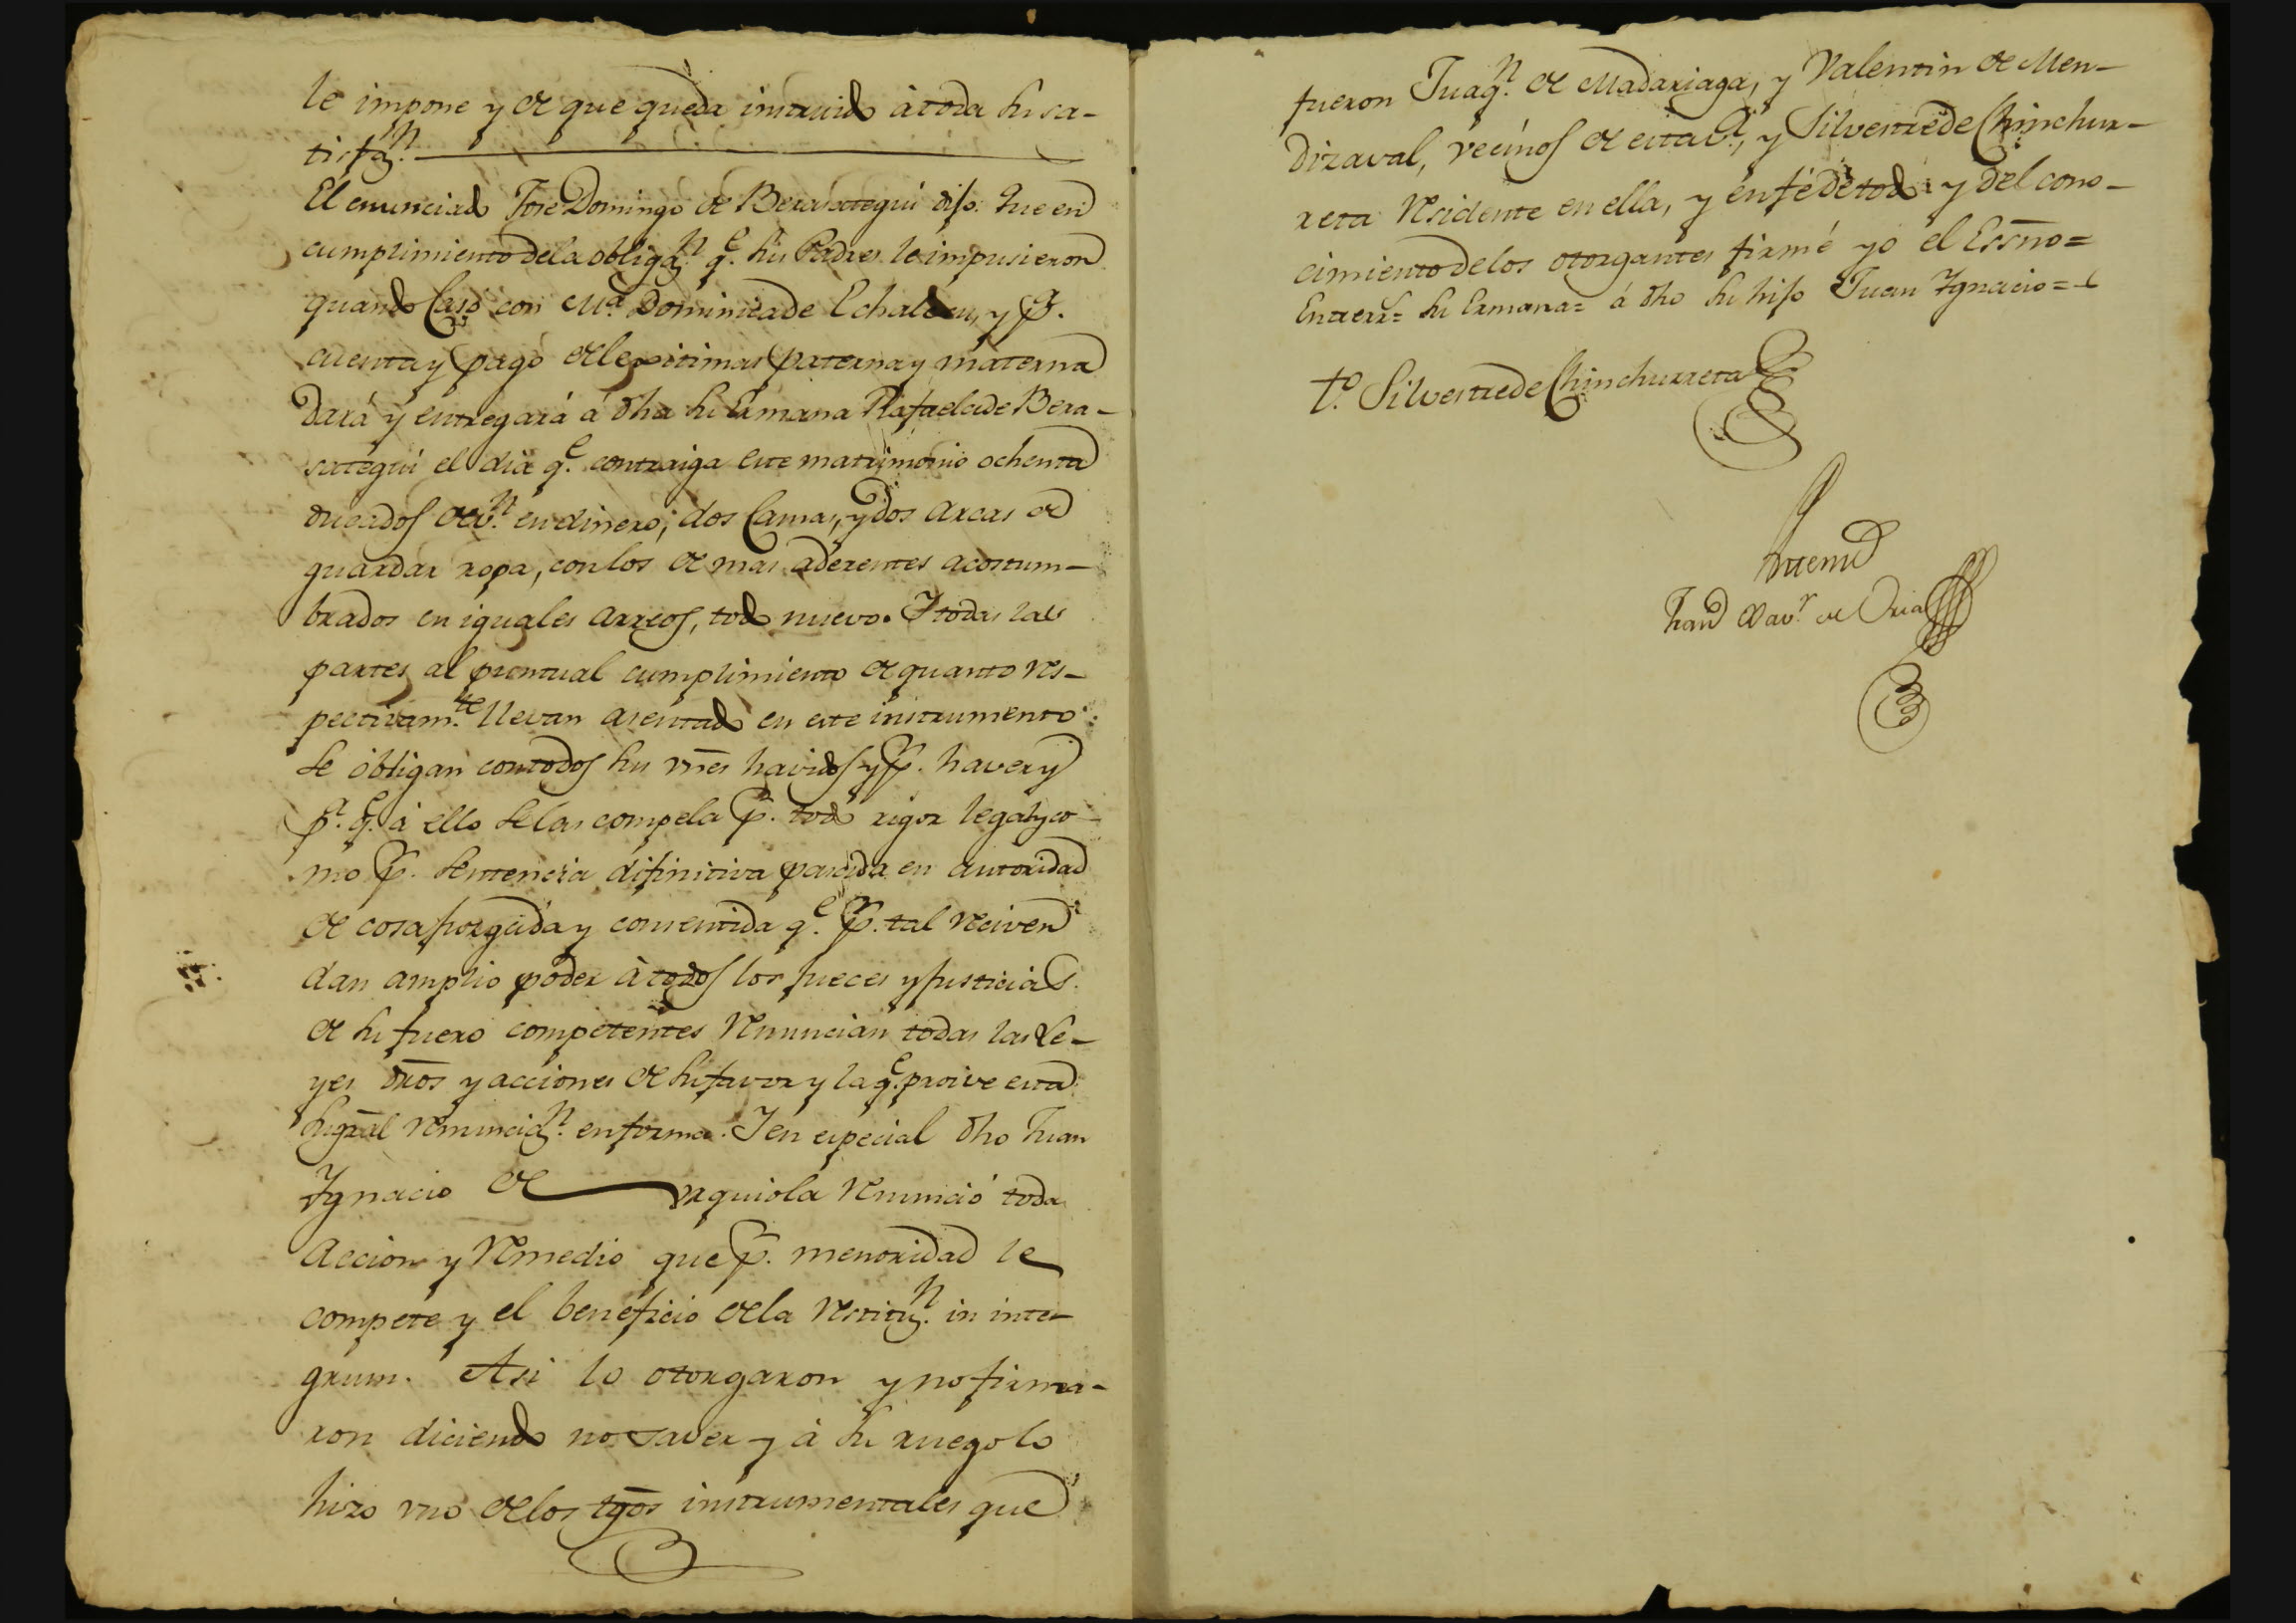 le impone y de que queda instruido à toda su sa-
tisfaz.n
El enunciado Jose Domingo de Berasategui dijo: Que en
cumplimiento dela obligaz.n q.e sus Padres le impusieron
quando Casó con M.a Dominica de Echalecu, y p.r
cuenta y pago de lexitimas paterna y materna
dará y entregará à dha su Ermana Rafaela de Bera-
sategui el dia q.e contraiga este matrimonio ochenta
ducados de v.n en dinero; dos Camas, y dos arcas de
guardar ropa, con los de mas aderentes acostum-
brados en iguales arreos, todo nuevo. I todas las
partes al puntual cumplimiento de quanto res-
pectivam.te llevan asentado en este instrumento
se obligan con todos sus vnes havidos y p.r haver y
p.a q.e à ello se las compela p.r todo rigor legal y co-
mo p.r sentencia difinitiva pasada en autoridad
de cosa juzgada y consentida q.e p.r tal reciven
dan amplio poder à todos los jueces y justicias
de su fuero competentes renuncian todas las Le-
yes dros y acciones de su favor y la q.e proive esta
su gral renunciaz.n en forma. I en especial dho Juan
Ygnacio de Urquiola renunció toda
accion y remedio que p.r menoridad le
compete y el beneficio dela restituz.n in inte-
grum. Asi lo otorgaron y no firma-
ron diciendo no saver y à su ruego lo
hizo uno de los tgos instrumentales que
fueron Juaq.n de Madariaga, y Valentin de Men-
dizaval, vecinos de esta v.a, y Silvestre de Chinchur-
reta residente en ella, y en fé de todo y del cono-
cimiento de los otorgantes firmé yo el Essno=
Entrerr.s= su Ermana= á dho su hijo Juan Ygnacio=
t.o Silvestre de Chinchurreta
Antemi
Fran.co Xav.r de Oria